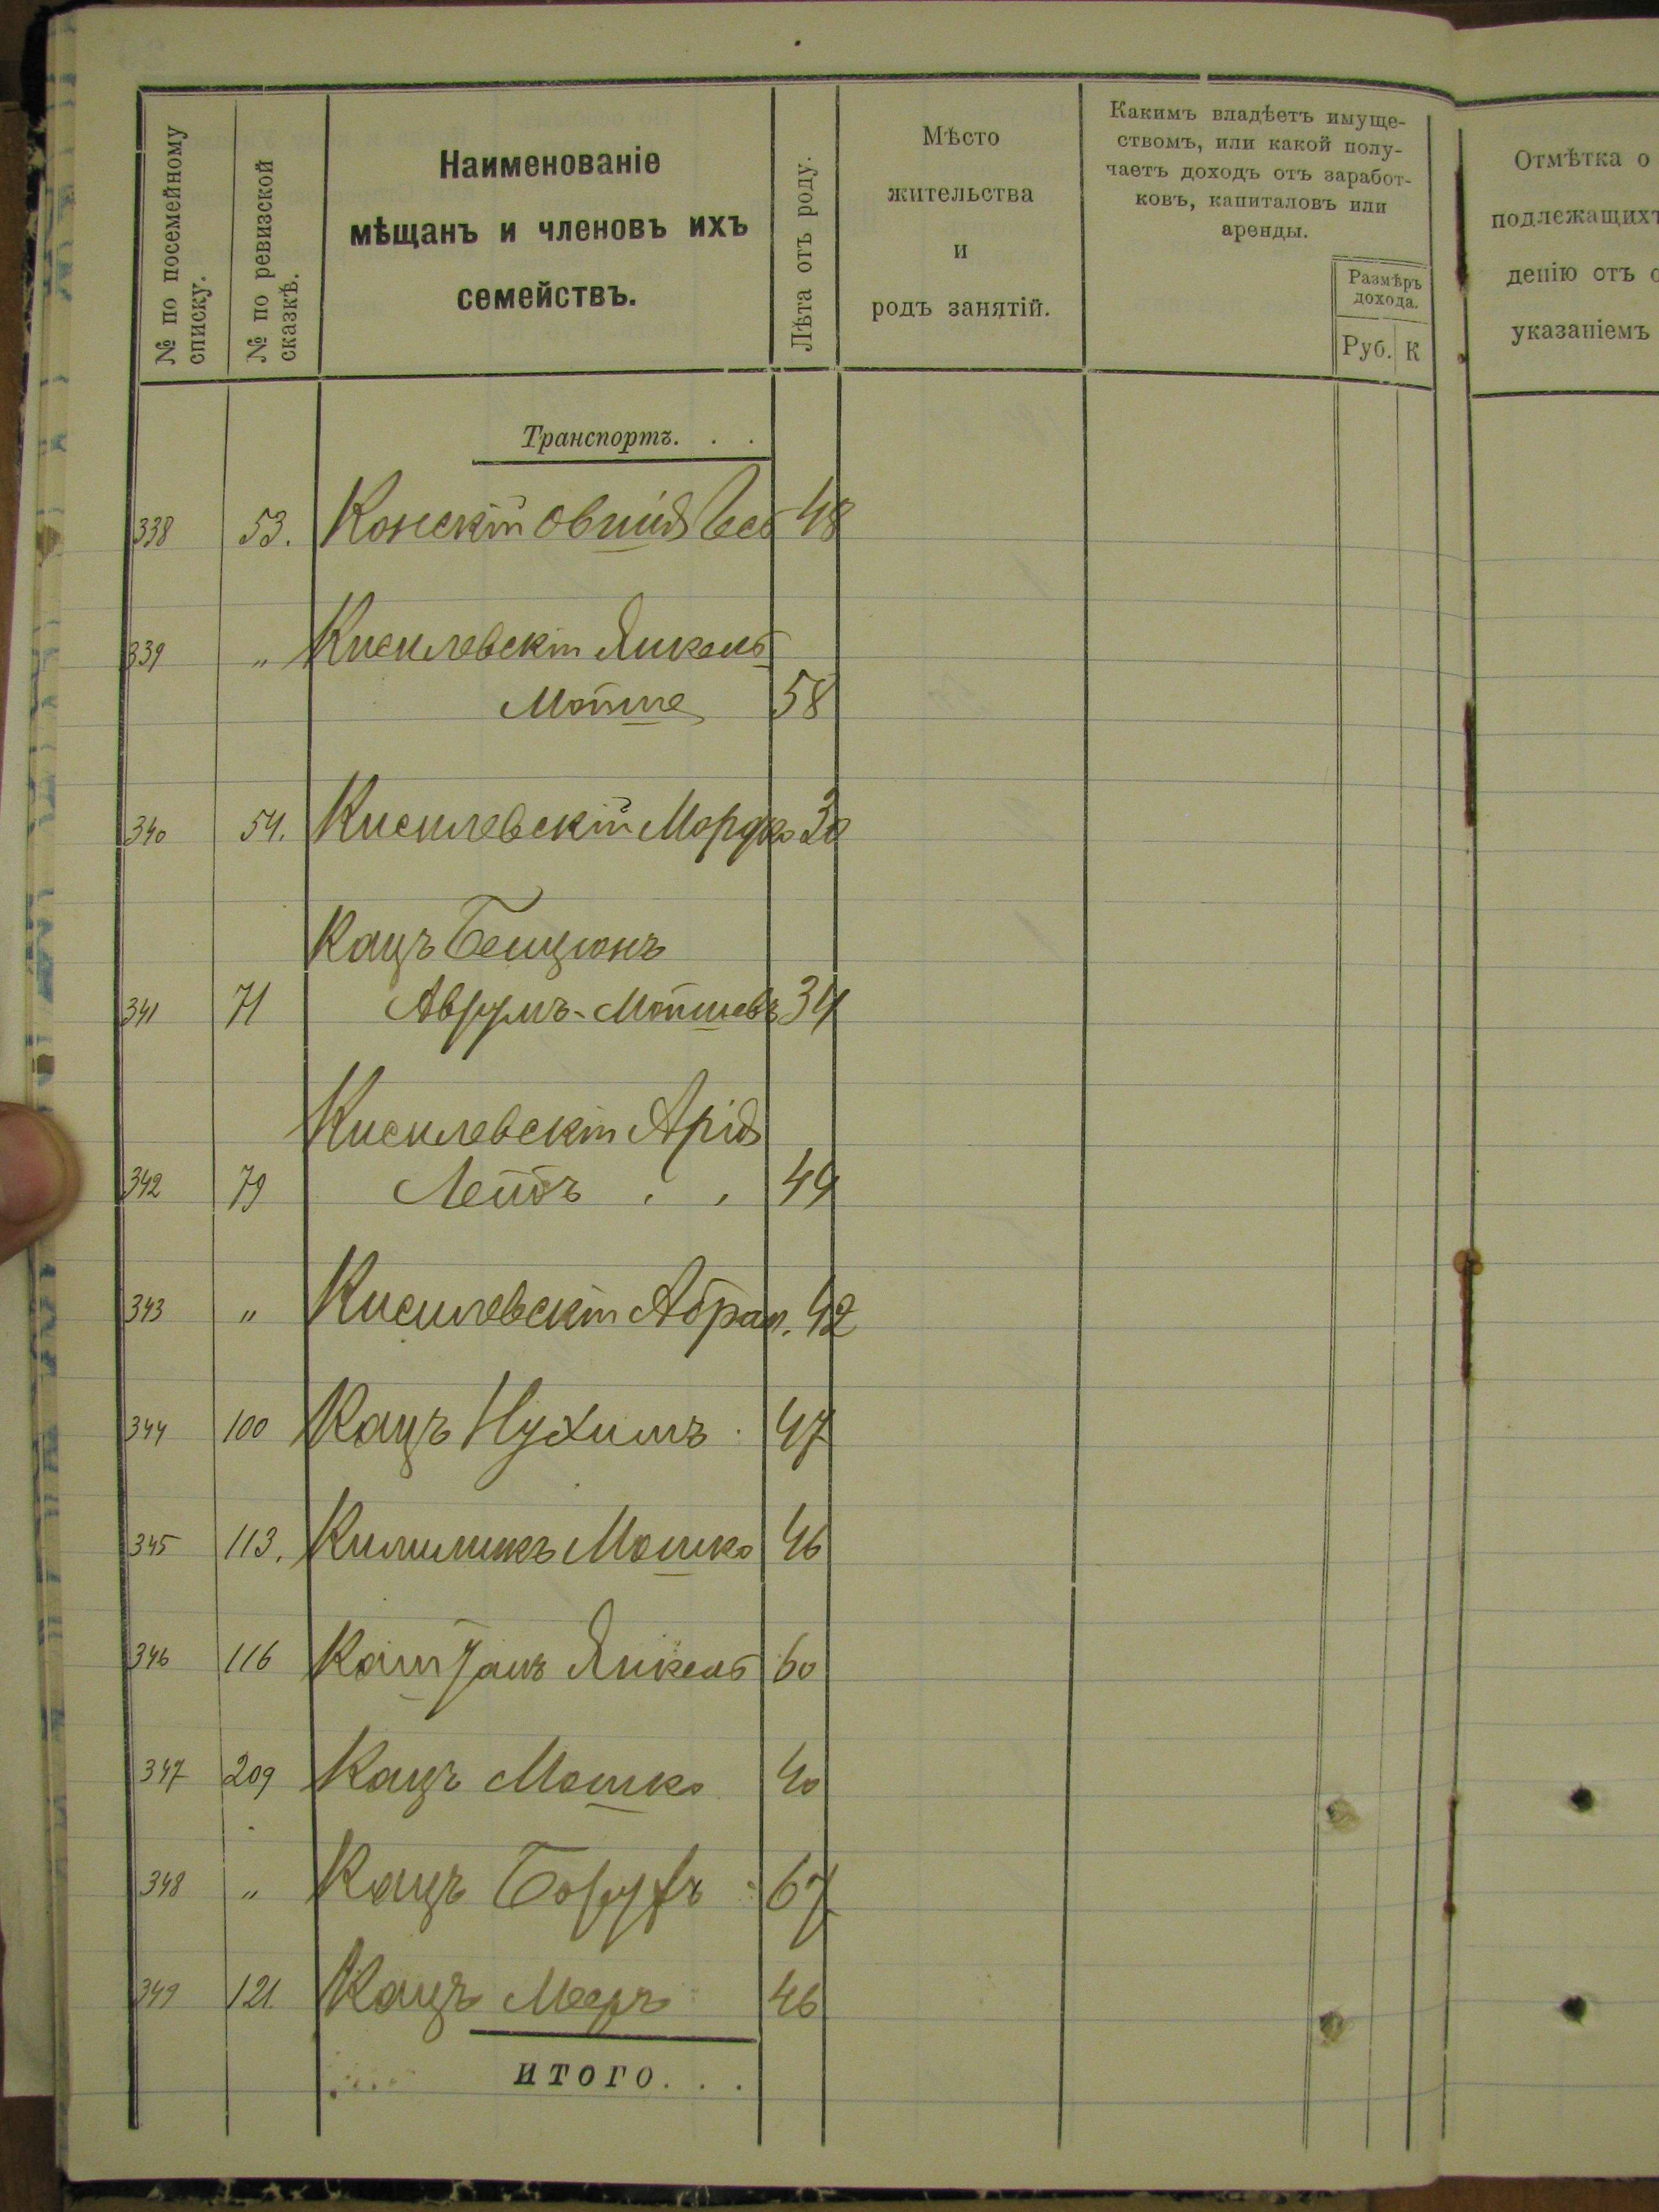 № по посемейному списку.
№ по ревизской сказкѣ.
Наименованіе
мѣщанъ и членовъ ихъ
семействъ.
Лѣта отъ роду.
Мѣсто
жительства
и
родъ занятій.
Какимъ владѣетъ имуще-
ствомъ, или какой полу-
чаетъ доходъ отъ заработ-
ковъ, капиталовъ или
аренды.
Размѣръ
дохода.
Руб. К
Отмѣтка о
подлежащихъ
денію отъ о
указаніемъ
Транспортъ. . .
338 53. Конскій Овшія 48
339 „ Кисилевскій Янкель
Мойше 58
340 54. Кисилевскій Мордко 30
Кацъ Бенціонъ
341 71 Аврумъ-Мойшевъ 34
Кисилевскій Арія
342 79 Лейбъ . . 49
343 „ Кисилевскій Абрам. 42
344 100 Кацъ Нухимъ . 47
345 113. Мошко 46
346 116 Янкель 60
347 209 Кацъ Мошко 40
348 „ Кацъ Борухъ 67
349 121. Кацъ Мееръ 46
ИТОГО. . .